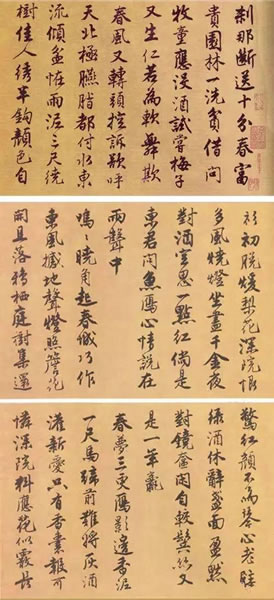 剎那斷送十分春富
貴園林一洗貧借問
牧童應沒酒試嘗梅子
又生仁若為軟舞欺
春風又轉頭控訴欲呼
天北極臙脂都付水東
流傾盆怪雨泥三尺繞
樹佳人綉半鈎顏色自
衫初脫煖梨花深院恨
多風燒燈坐盡千金夜
對酒空思一點紅倘是
東君問魚雁心情說在
雨聲中
鳴曉角起春城巧作
東風撼地聲燈照簷花
開且落鴉棲庭樹集還
驚紅顏不為琴心駐
綠酒休辭盞面盈默
對鏡奩閑自較鬢絲又
是一年
春夢三更雁影邊香泥
一尺馬蹄前難將灰酒
灌新愛只有香囊報可
憐深院料應花似霰長